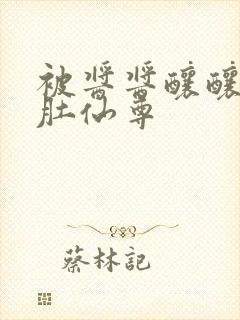 被醬醬釀釀
肚仙尊
蔡林記